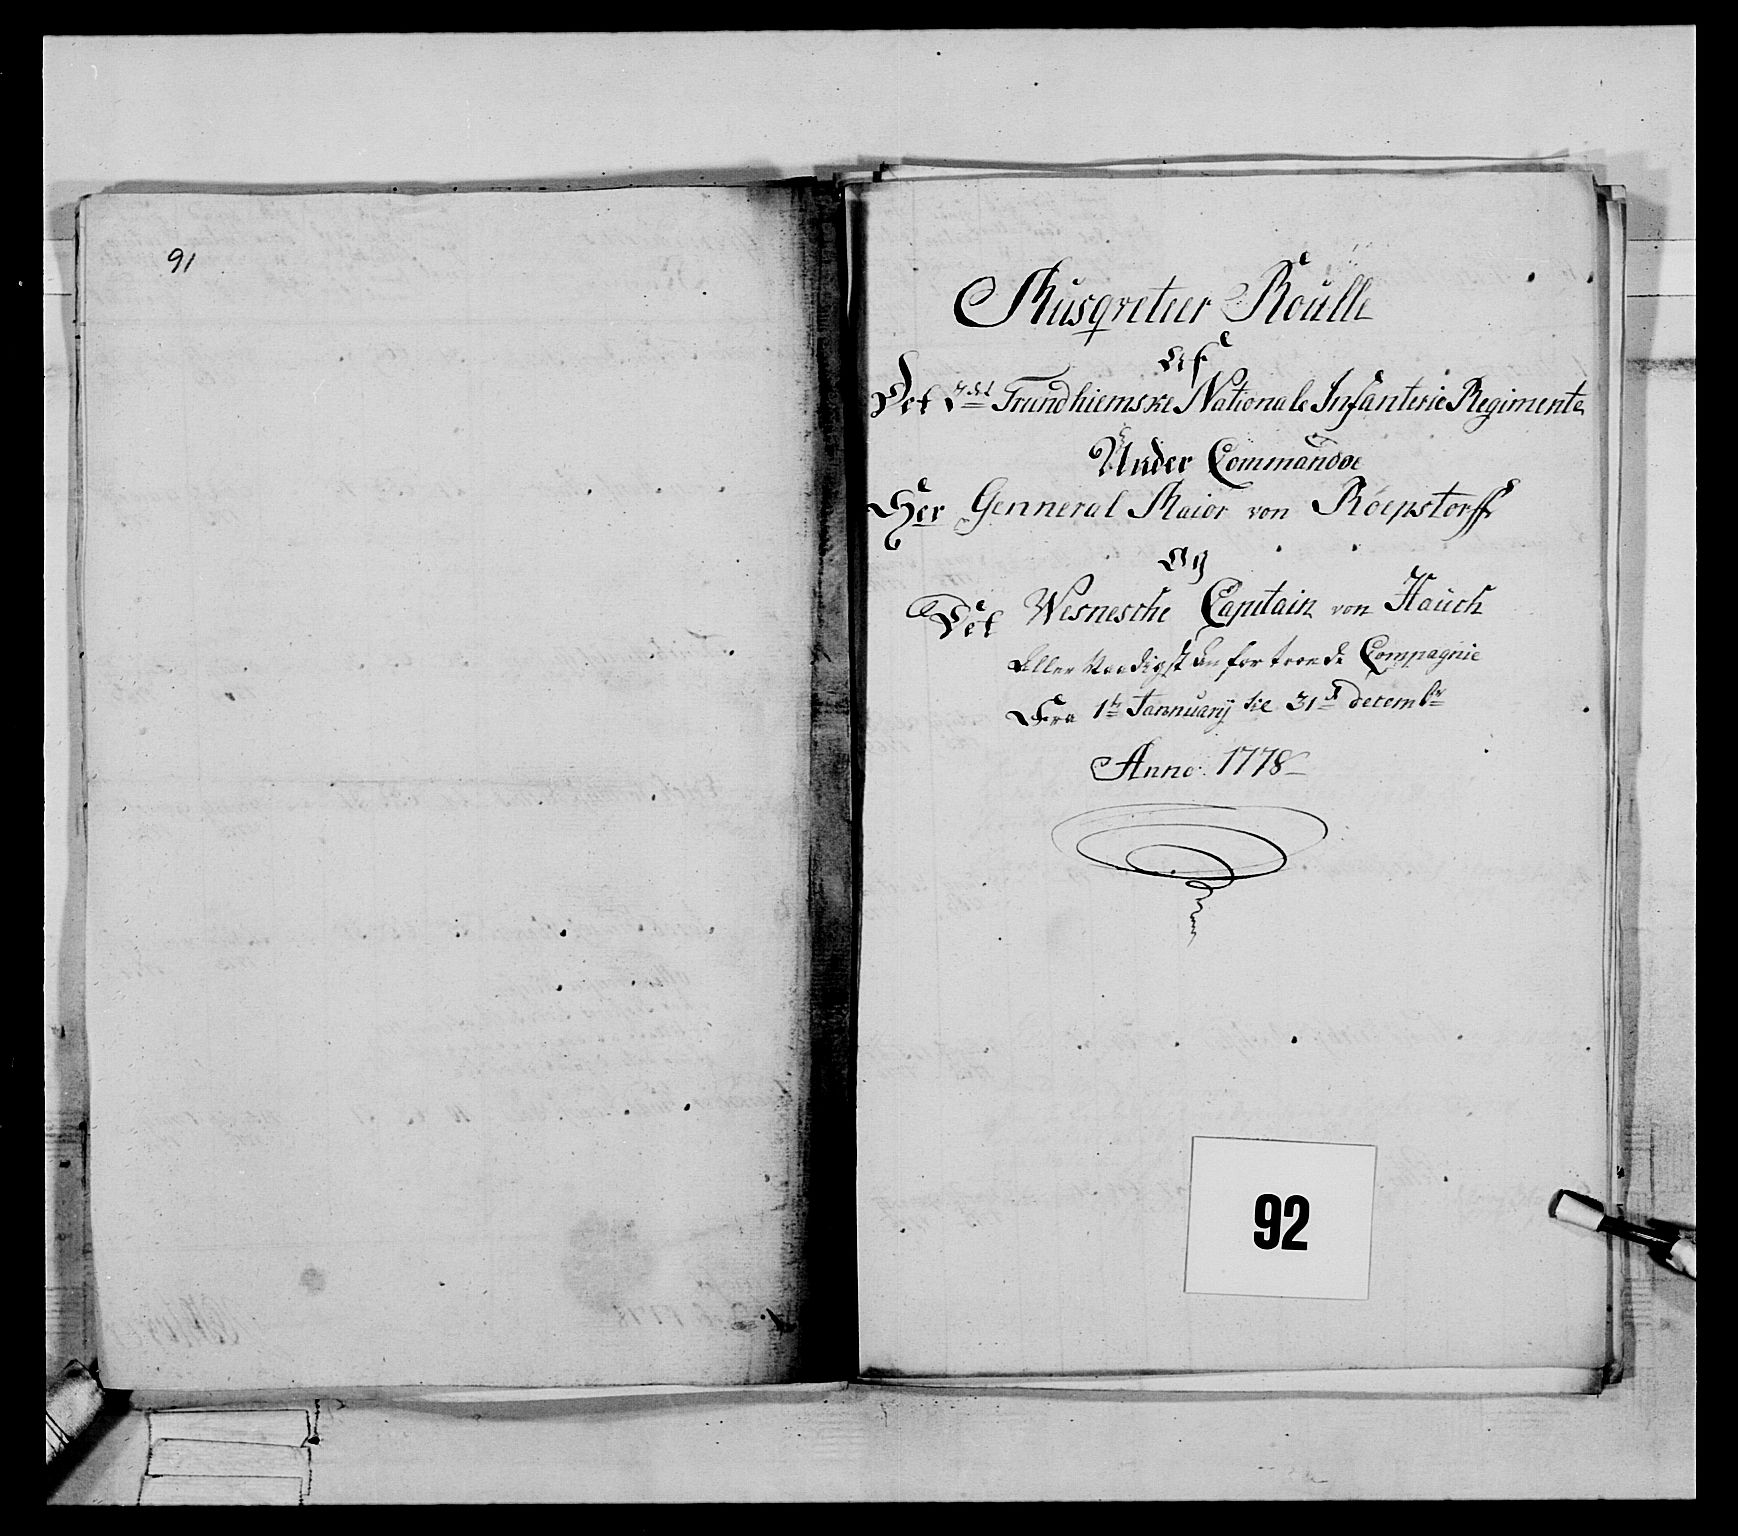 91
Musqveteer Roulle
Af
Det 2det Trundhiemske Nationale Infanterie Regimente
Under Commandoe
Her Genneral Maior von Röepstorff
Og
Det Wesnesche Capitain von Hauch
Aller Naadigst anfortroede Compagnie
Fra 1te Jannuarij til 31te decembr
Anno 1778
92